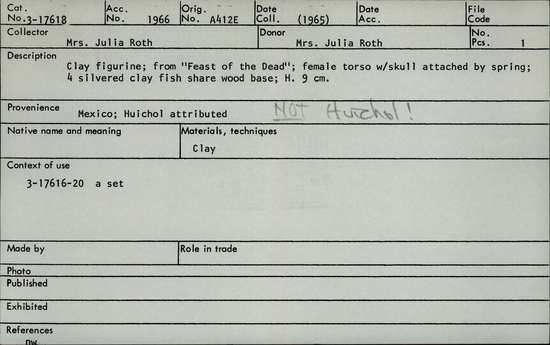 Cat. No. 3-17618 Acc. No. 1966 Orig. No. A412E Date Coll. (1965) Date Acc. File Code
Collector Mrs. Julia Roth Donor Mrs. Julia Roth No. Pcs. 1
Description
Clay figurine; from "Feast of the Dead"; female torso w/skull attached by spring;
4 silvered clay fish share wood base; H. 9 cm.
Provenience Mexico; Huichol attributed NOT Huichol!
Native name and meaning Materials, techniques
Clay
Context of use
3-17616-20 a set
Made by Role in trade
Photo
Published
Exhibited
References